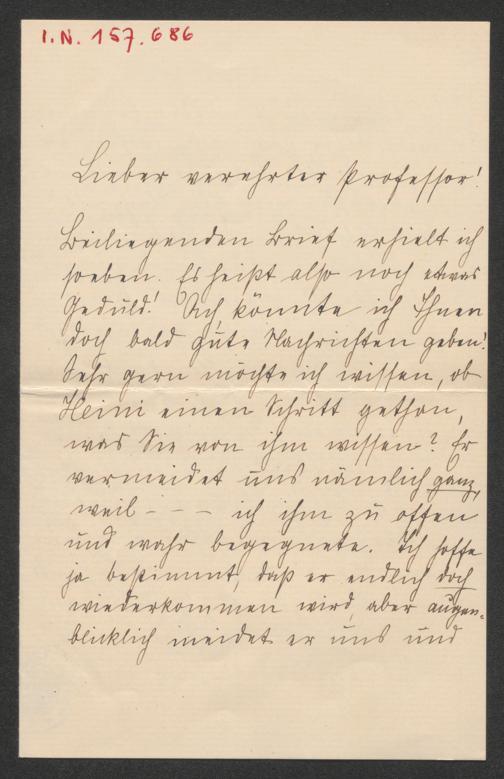 I.N. 157.686
Lieber verehrter Professor!
Beiliegenden Brief erhielt ich
soeben. Es heißt also noch etwas
Geduld! Ach könnte ich Ihnen
doch bald gute Nachrichten geben!
Sehr gern möchte ich wissen, ob
Heini einen Schritt gethan,
was Sie von ihm wissen? Er
vermeidet uns nämlich ganz,
weil - - - ich ihm zu offen
und wahr begegnete. Ich hoffe
ja bestimmt, daß er endlich doch
wiederkommen wird, aber augen-
blicklich meidet er uns und